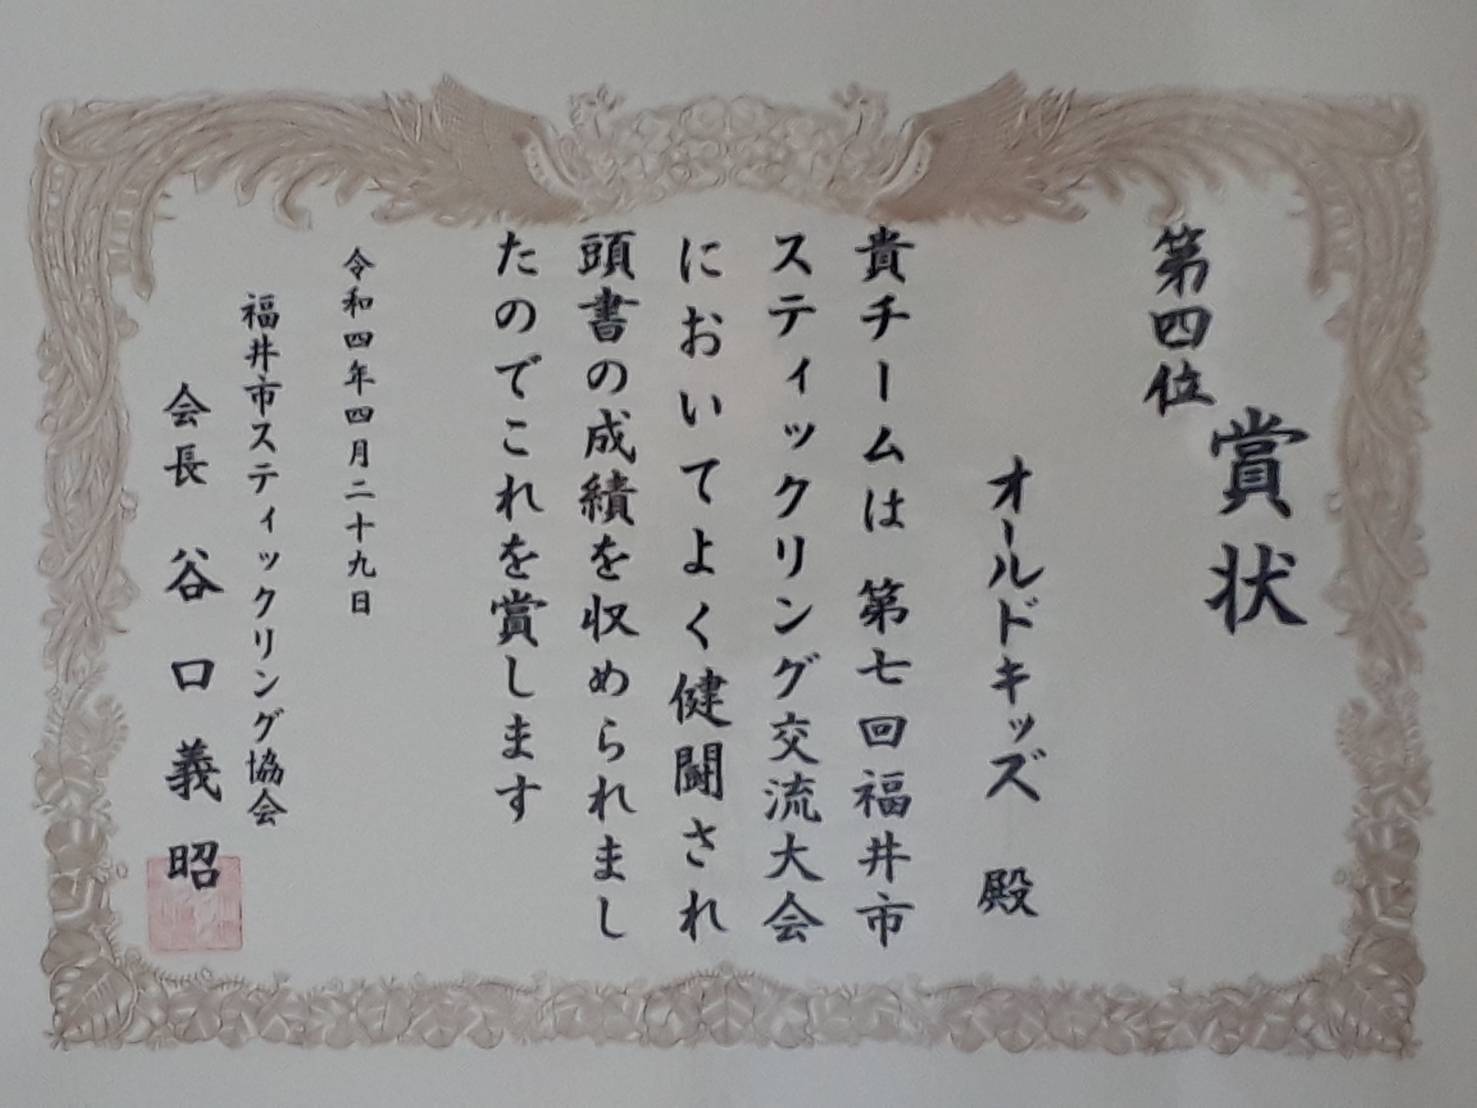 賞状
第四位
オールドキッズ 殿
貴チームは 第七回福井市
スティックリング交流大会
においてよく健闘され
頭書の成績を収められまし
たのでこれを賞します
令和四年四月二十九日
福井市スティックリング協会
会長 谷口義昭